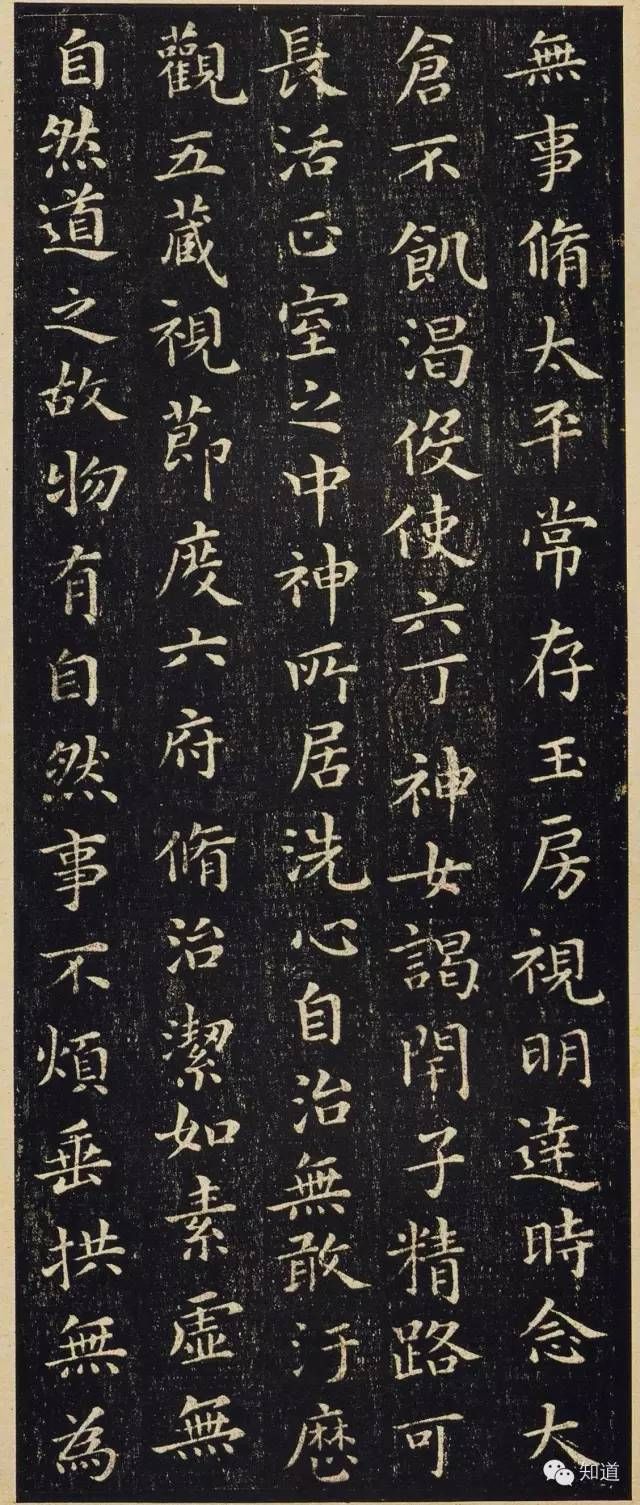 無事脩太平常存玉房視明達時念大
倉不飢渴伇使六丁神女謁閇子精路可
長活正室之中神所居洗心自治無敢汙歷
觀五藏視節度六府脩治潔如素虛無
自然道之故物有自然事不煩垂拱無為
知道